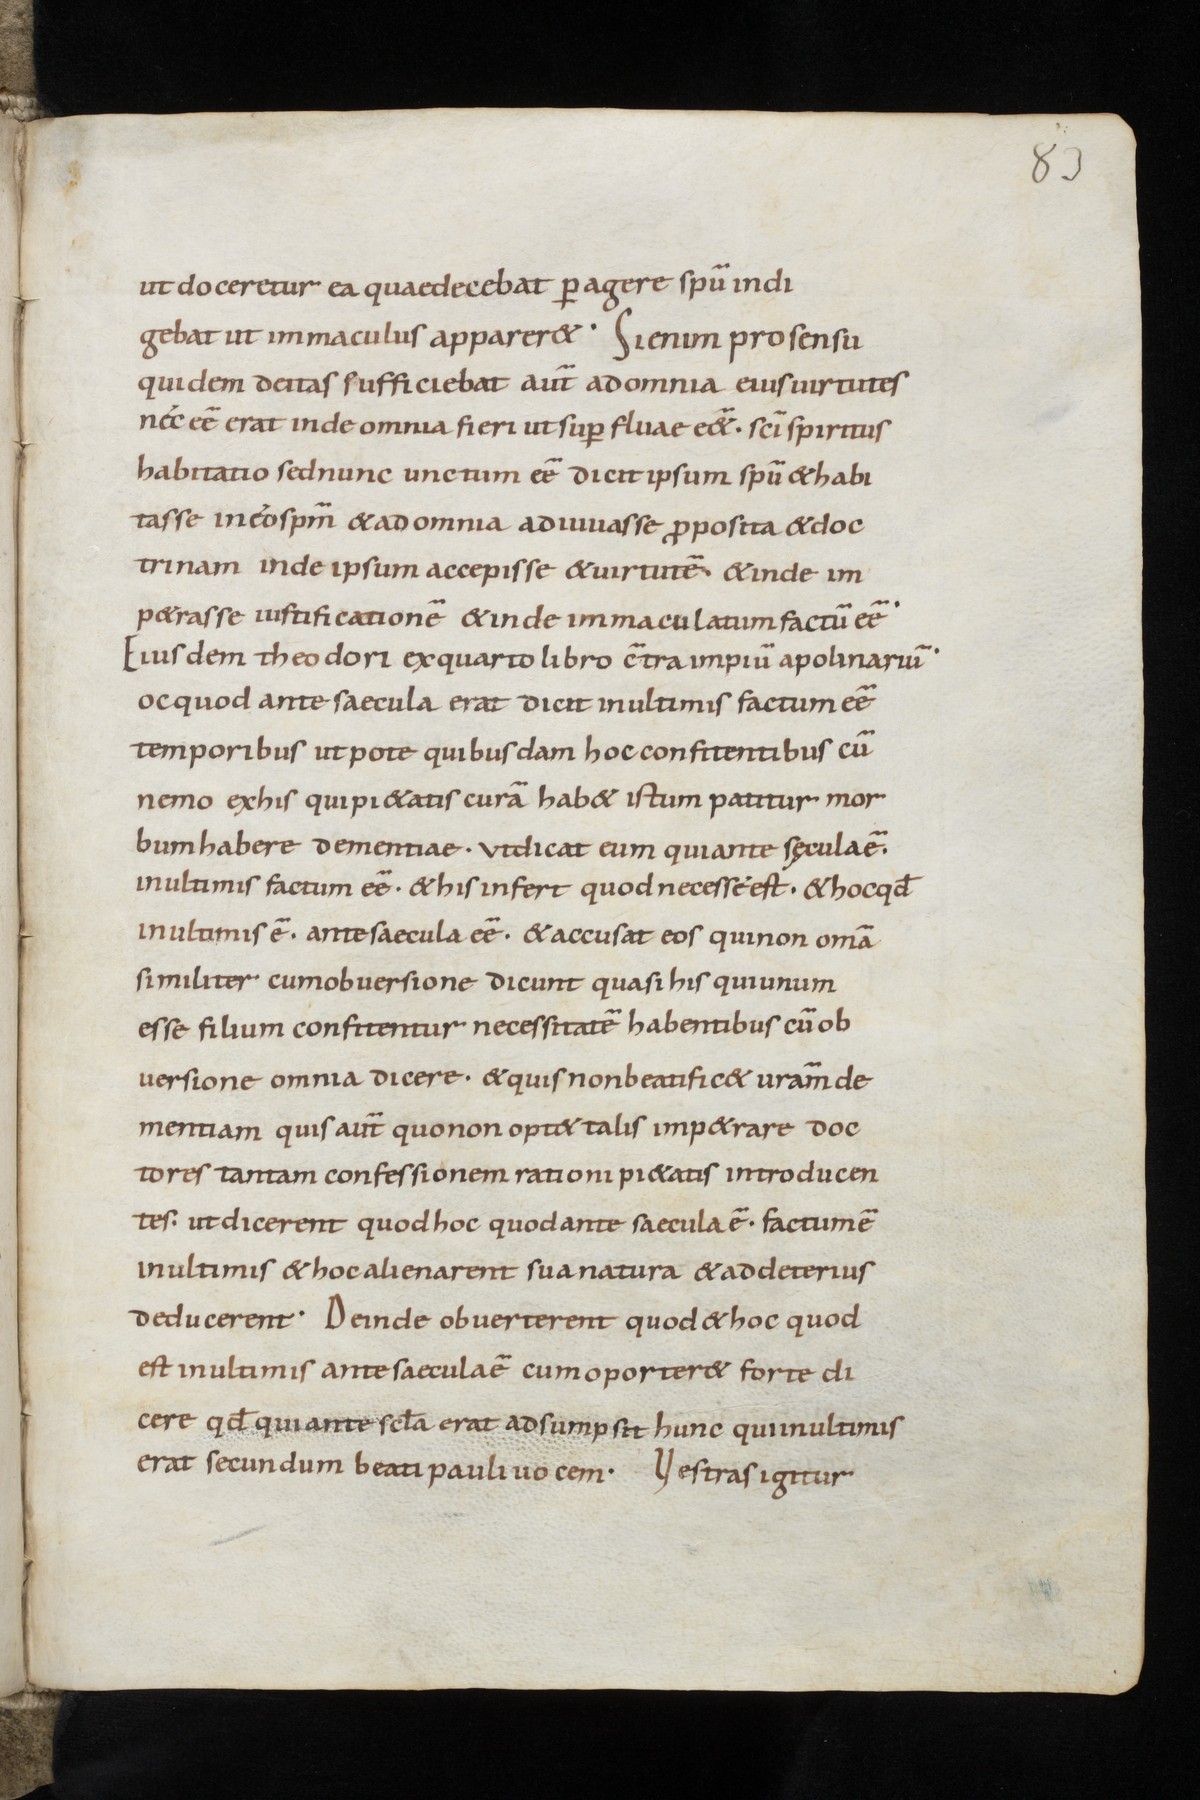 83
ut doceretur ea quaedecebat ꝑagere spū indi
gebat ut immaculus apparer& · Si enim pro sensu
quidem deitas sufficiebat aut̄ ad omnia eius uirtutes
nec eē erat inde omnia fieri ut suꝑfluae e&̄· sc̄i spiritus
habitatio sed nunc unctum eē dicit ipsum spū & habi
tasse in eo spm̄ & ad omnia adiuuasse ꝓposita & doc
trinam inde ipsum accepisse & uirtutē· & inde im
p&rasse iustificationē & inde immaculatum factū eē·
Eiusdem theodori ex quarto libro c̄tra impiū apolinariū·
oc quod ante saecula erat dicit in ultimis factum eē
temporibus utpote quibusdam hoc confitentibus cū
nemo ex his qui pi&atis curā hab& istum patitur mor
bum habere dementiae· ut dicat eum qui ante sęcula ē·
in ultimis factum eē· & his infert quod necesse est· & hoc qd̄
in ultimis ē· ante saecula eē· & accusat eos qui non omā
similiter cum obuersione dicunt quasi his qui unum
esse filium confitentur necessitatē habentibus cū ob
uersione omnia dicere· & quis non beatific& uram̄ de
mentiam quis aut̄ quo non opt& talis imp&rare doc
tores tantam confessionem rationi pi&atis introducen
tes· ut dicerent quod hoc quod ante saecula ē· factum ē
in ultimis & hoc alienarent sua natura & ad deterius
deducerent· Deinde obuerterent quod & hoc quod
est in ultimis ante saecula ē cum oporter& forte di
cere qd̄ qui ante scl̄a erat adsumpsit hunc qui in ultimis
erat secundum beati pauli uocem· Vestras igitur